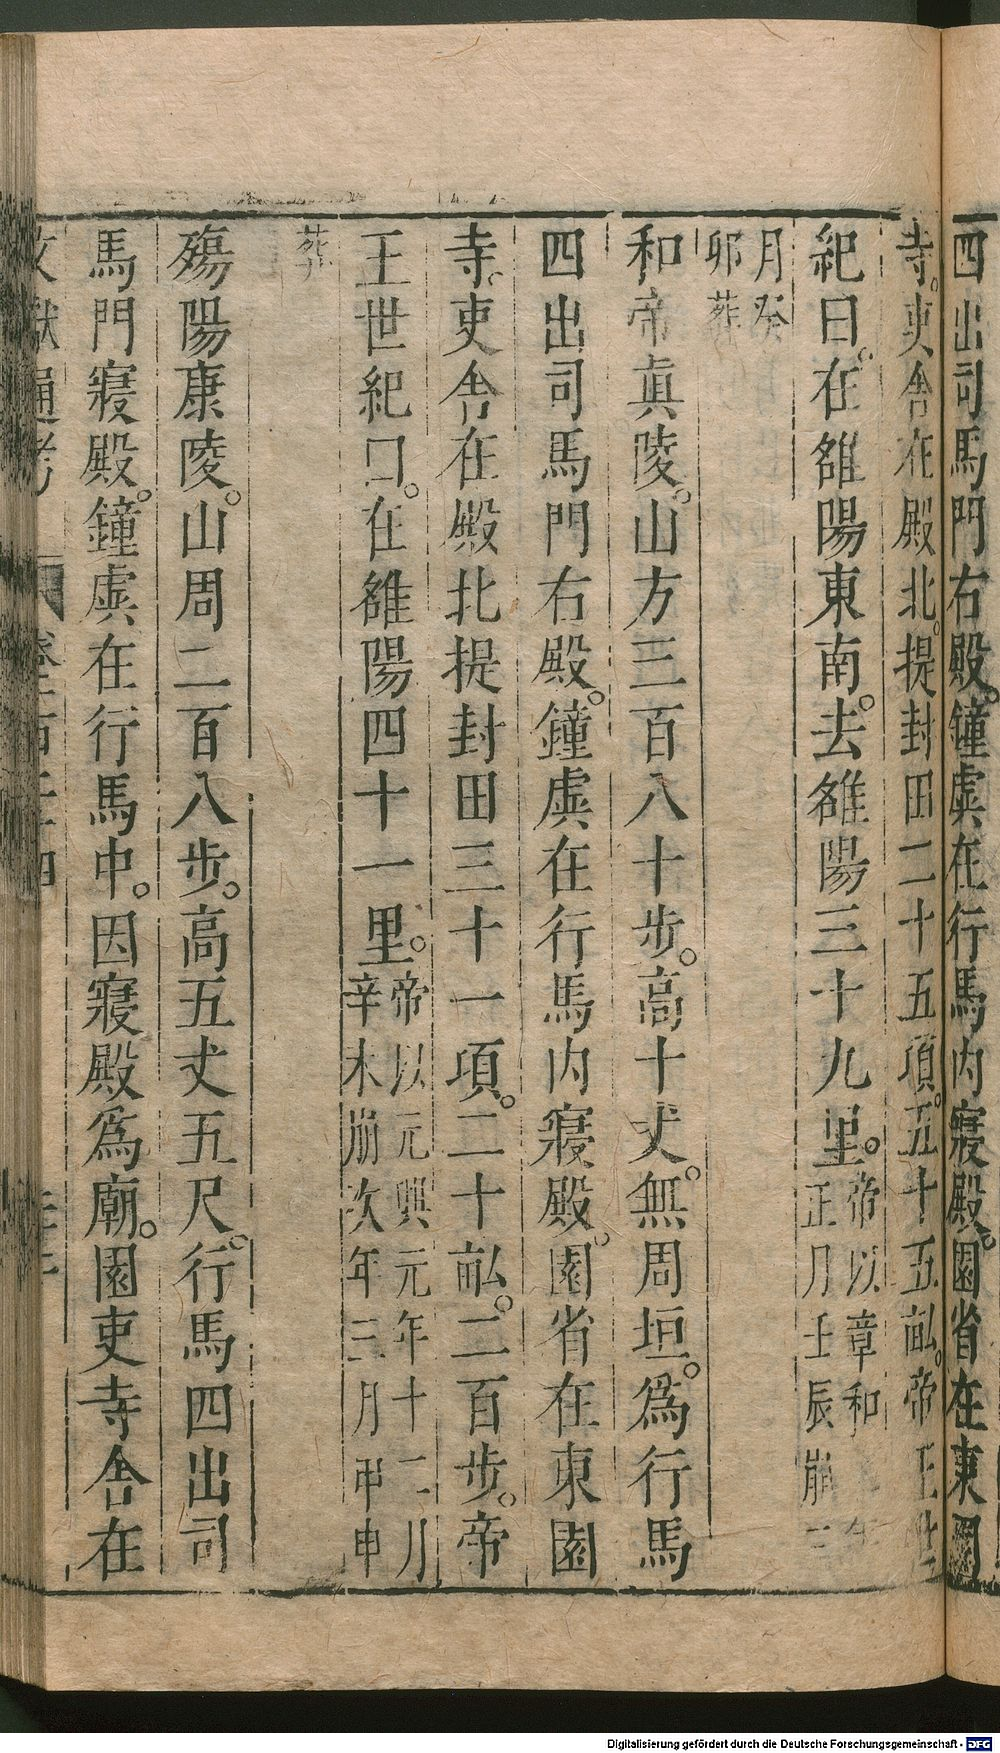 四出司馬門右殿。鐘虡在行馬内寢殿。園省在東園
寺。吏舍在殿北。提封田二十五項。五十五畝。帝王世
紀曰。在雒陽東南。去雒陽三十九里。帝以章和
正月壬辰崩三
月癸
卯葬
和帝眞陵。山方三百八十步。高十丈。無周垣。爲行馬
四出司馬門右殿。鐘虡在行馬内寢殿。園省在東園
寺。吏舍在殿北提封田三十一項。二十畝。二百步。帝
王世紀曰。在雒陽四十一里。帝以元興元年十二月
辛未崩次年三月甲申
葬
殤陽康陵。山周二百八步。高五丈五尺。行馬四出司
馬門寢殿。鐘虡在行馬中。因寢殿爲廟。園吏寺舍在
文獻通考 卷一百二十四
Digitalisierung gefördert durch die Deutsche Forschungsgemeinschaft - DFG